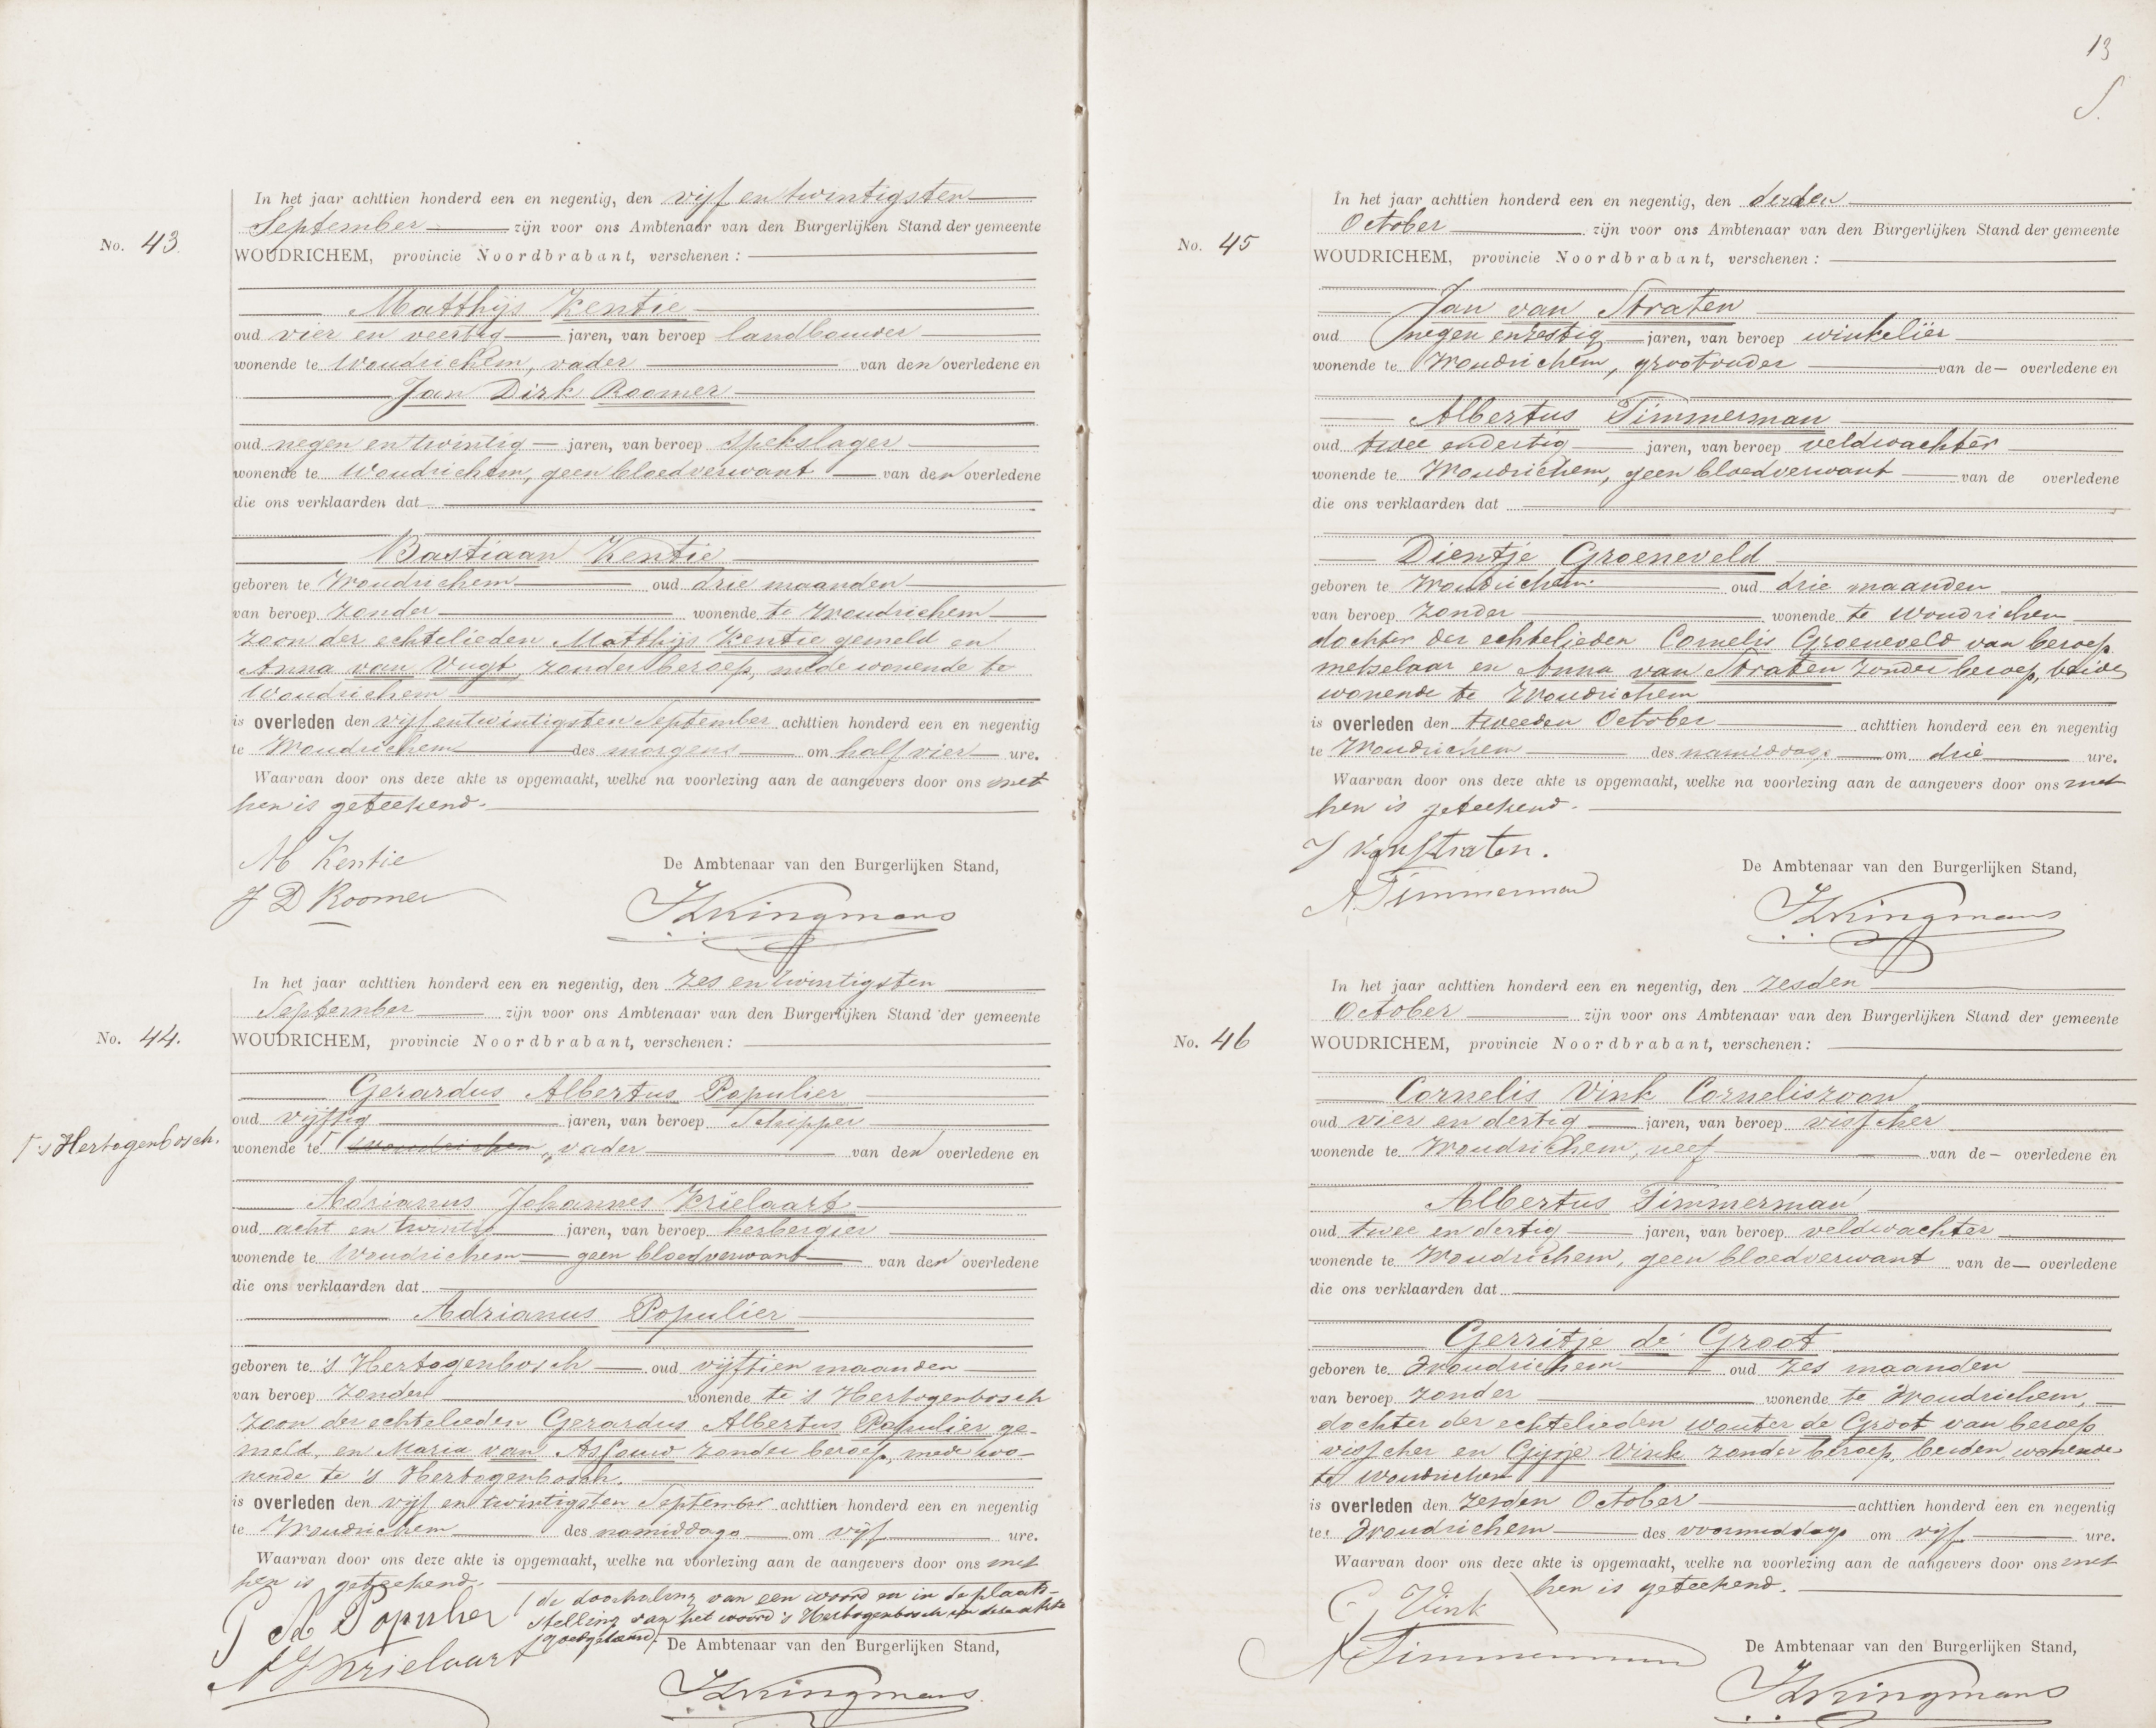 In het jaar achttien honderd een en negentig, den vijf en twintigsten
September zijn voor ons Ambtenaar van den Burgerlijken Stand der gemeente
No. 43.
WOUDRICHEM, provincie Noordbrabant, verschenen:
Matthijs Kentie
oud vier en veertig jaren, van beroep landbouwer
wonende te Woudrichem, vader van den overledene en
Jan Dirk Roomer
oud negen en twintig jaren, van beroep spekslager
wonende te Woudrichem, geen bloedverwant van den overledene
die ons verklaarden dat
Bastiaan Kentie
geboren te Woudrichem oud drie maanden
van beroep zonder wonende te Woudrichem
zoon der echtelieden Matthijs Kentie gemeld en
Anna van Vugt, zonder beroep, mede wonende te
Woudrichem
is overleden den vijf en twintigsten September achttien honderd een en negentig
te Woudrichem des morgens om half vier ure.
Waarvan door ons deze akte is opgemaakt, welke na voorlezing aan de aangevers door ons met
hen is geteekend.
M Kentie
De Ambtenaar van den Burgerlijken Stand,
J D Roomer
In het jaar achttien honderd een en negentig, den zes en twintigsten
September zijn voor ons Ambtenaar van den Burgerlijken Stand der gemeente
No. 44.
WOUDRICHEM, provincie Noordbrabant, verschenen:
Gerardus Albertus Populier
oud vijftig jaren, van beroep Schipper
's Hertogenbosch.
wonende te Woudrichem, vader van den overledene en
Adrianus Johannes Krielaart
oud acht en twintig jaren, van beroep herbergier
wonende te Woudrichem geen bloedverwant van den overledene
die ons verklaarden dat
Adrianus Populier
geboren te 's Hertogenbosch oud vijftien maanden
van beroep zonder wonende te 's Hertogenbosch
zoon der echtelieden Gerardus Albertus Populier ge-
meld, en Maria van zonder beroep, mede wo-
nende te 's Hertogenbosch.
is overleden den vijf en twintigsten September achttien honderd een en negentig
te Woudrichem des namiddags om vijf ure.
Waarvan door ons deze akte is opgemaakt, welke na voorlezing aan de aangevers door ons met
hen is geteekend.
de doorhaling van een woord en in de plaats-
stelling van het woord 's Hertogenbosch in deze akte
goedgekeurd.
G A Populier
A J Krielaart
De Ambtenaar van den Burgerlijken Stand,
13
In het jaar achttien honderd een en negentig, den derden
October zijn voor ons Ambtenaar van den Burgerlijken Stand der gemeente
No. 45
WOUDRICHEM, provincie Noordbrabant, verschenen:
Jan van Straten
oud negen en zestig jaren, van beroep winkelier
wonende te Woudrichem, grootvader van de overledene en
Albertus Timmerman
oud twee en dertig jaren, van beroep veldwachter
wonende te Woudrichem, geen bloedverwant van de overledene
die ons verklaarden dat
Dientje Groeneveld
geboren te Woudrichem oud drie maanden
van beroep zonder wonende te Woudrichem
dochter der echtelieden Cornelis Groeneveld van beroep
metselaar en Anna van Straten zonder beroep, beide
wonende te Woudrichem
is overleden den tweeden October achttien honderd een en negentig
te Woudrichem des namiddags om drie ure.
Waarvan door ons deze akte is opgemaakt, welke na voorlezing aan de aangevers door ons met
hen is geteekend.
J van Straten.
De Ambtenaar van den Burgerlijken Stand,
A Timmerman
In het jaar achttien honderd een en negentig, den zesden
October zijn voor ons Ambtenaar van den Burgerlijken Stand der gemeente
No. 46
WOUDRICHEM, provincie Noordbrabant, verschenen:
Cornelis Vink Corneliszoon
oud vier en dertig jaren, van beroep visscher
wonende te Woudrichem, neef van de overledene en
Albertus Timmerman
oud twee en dertig jaren, van beroep veldwachter
wonende te Woudrichem, geen bloedverwant van de overledene
die ons verklaarden dat
Gerritje de Groot
geboren te Woudrichem oud zes maanden
van beroep zonder wonende te Woudrichem,
dochter der echtelieden Wouter de Groot van beroep
visscher en Vink zonder beroep, beiden wonende
te Woudrichem
is overleden den zesden October achttien honderd een en negentig
te Woudrichem des voormiddags om vijf ure.
Waarvan door ons deze akte is opgemaakt, welke na voorlezing aan de aangevers door ons met
hen is geteekend.
C Vink
A Timmerman
De Ambtenaar van den Burgerlijken Stand,